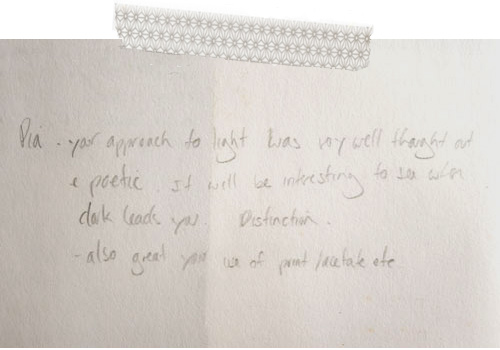 Pia. your approach to light was very well thought out
& poetic. It will be interesting to see where
dark leads you. Distinction.
- also great your use of print/acetate etc